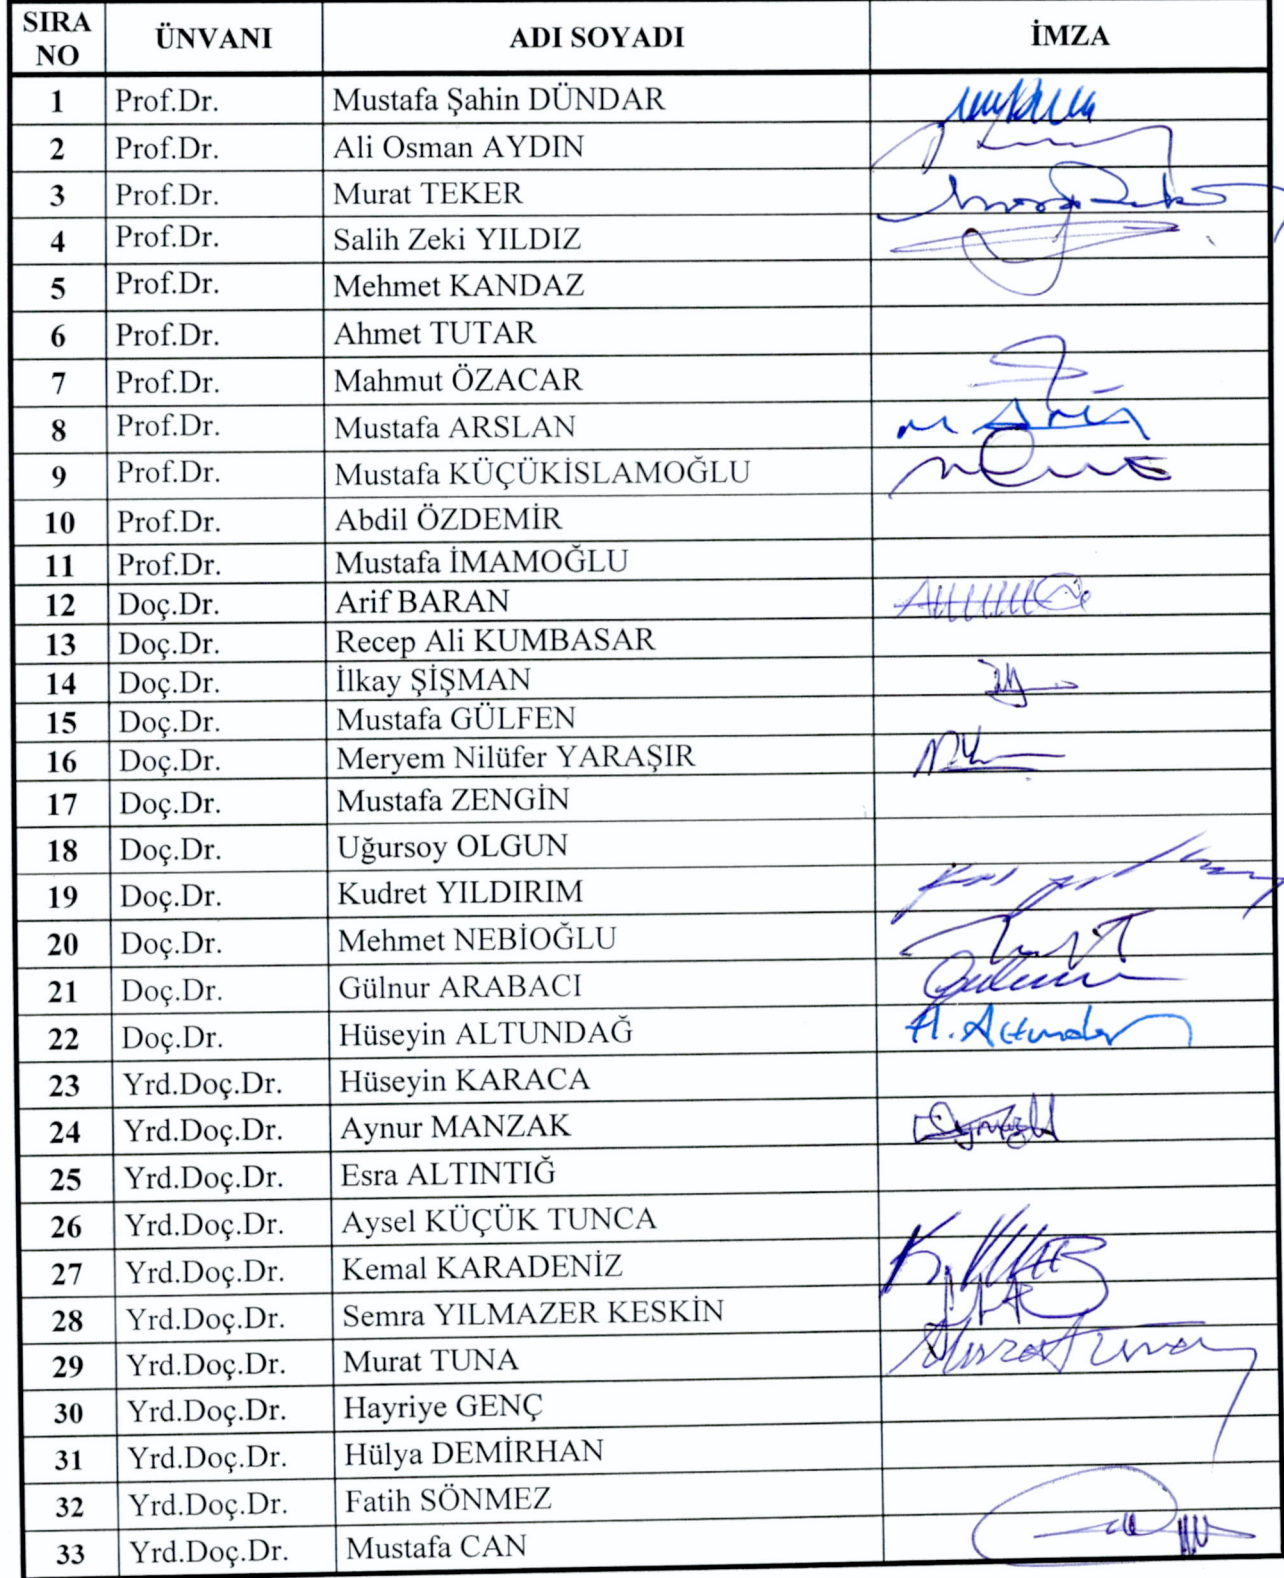 SIRA NO ÜNVANI ADI SOYADI İMZA
1 Prof.Dr. Mustafa Şahin DÜNDAR
2 Prof.Dr. Ali Osman AYDIN
3 Prof.Dr. Murat TEKER
4 Prof.Dr. Salih Zeki YILDIZ
5 Prof.Dr. Mehmet KANDAZ
6 Prof.Dr. Ahmet TUTAR
7 Prof.Dr. Mahmut ÖZACAR
8 Prof.Dr. Mustafa ARSLAN
9 Prof.Dr. Mustafa KÜÇÜKİSLAMOĞLU
10 Prof.Dr. Abdil ÖZDEMİR
11 Prof.Dr. Mustafa İMAMOĞLU
12 Doç.Dr. Arif BARAN
13 Doç.Dr. Recep Ali KUMBASAR
14 Doç.Dr. İlkay ŞİŞMAN
15 Doç.Dr. Mustafa GÜLFEN
16 Doç.Dr. Meryem Nilüfer YARAŞIR
17 Doç.Dr. Mustafa ZENGİN
18 Doç.Dr. Uğursoy OLGUN
19 Doç.Dr. Kudret YILDIRIM
20 Doç.Dr. Mehmet NEBİOĞLU
21 Doç.Dr. Gülnur ARABACI
22 Doç.Dr. Hüseyin ALTUNDAĞ
23 Yrd.Doç.Dr. Hüseyin KARACA
24 Yrd.Doç.Dr. Aynur MANZAK
25 Yrd.Doç.Dr. Esra ALTINTIĞ
26 Yrd.Doç.Dr. Aysel KÜÇÜK TUNCA
27 Yrd.Doç.Dr. Kemal KARADENİZ
28 Yrd.Doç.Dr. Semra YILMAZER KESKİN
29 Yrd.Doç.Dr. Murat TUNA
30 Yrd.Doç.Dr. Hayriye GENÇ
31 Yrd.Doç.Dr. Hülya DEMİRHAN
32 Yrd.Doç.Dr. Fatih SÖNMEZ
33 Yrd.Doç.Dr. Mustafa CAN